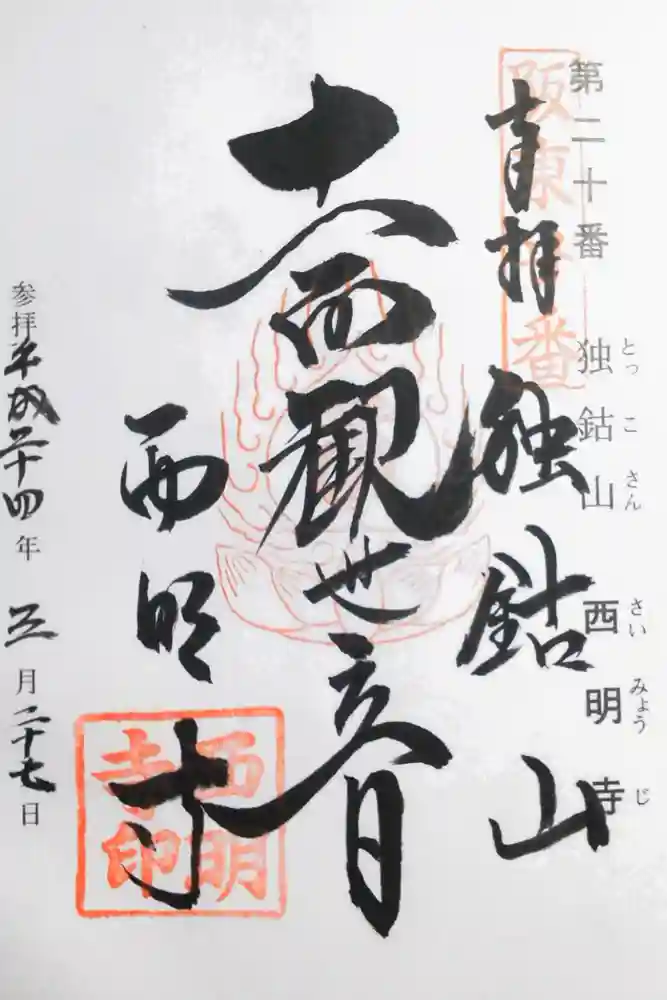 第二十番
独鈷山
とっこさん
西明寺
さいみょうじ
奉拝
独鈷山
十一面観世音
西明寺
参拝平成二十四年三月二十七日
西明
寺印